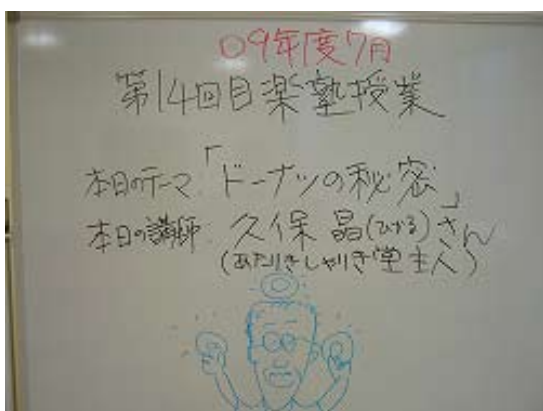 09年度7月
第14回目楽塾授業
本日のテーマ「ドーナツの秘密」
本日の講師 久保 晶(ひかる)さん
(あたりきしゃりき堂主人)